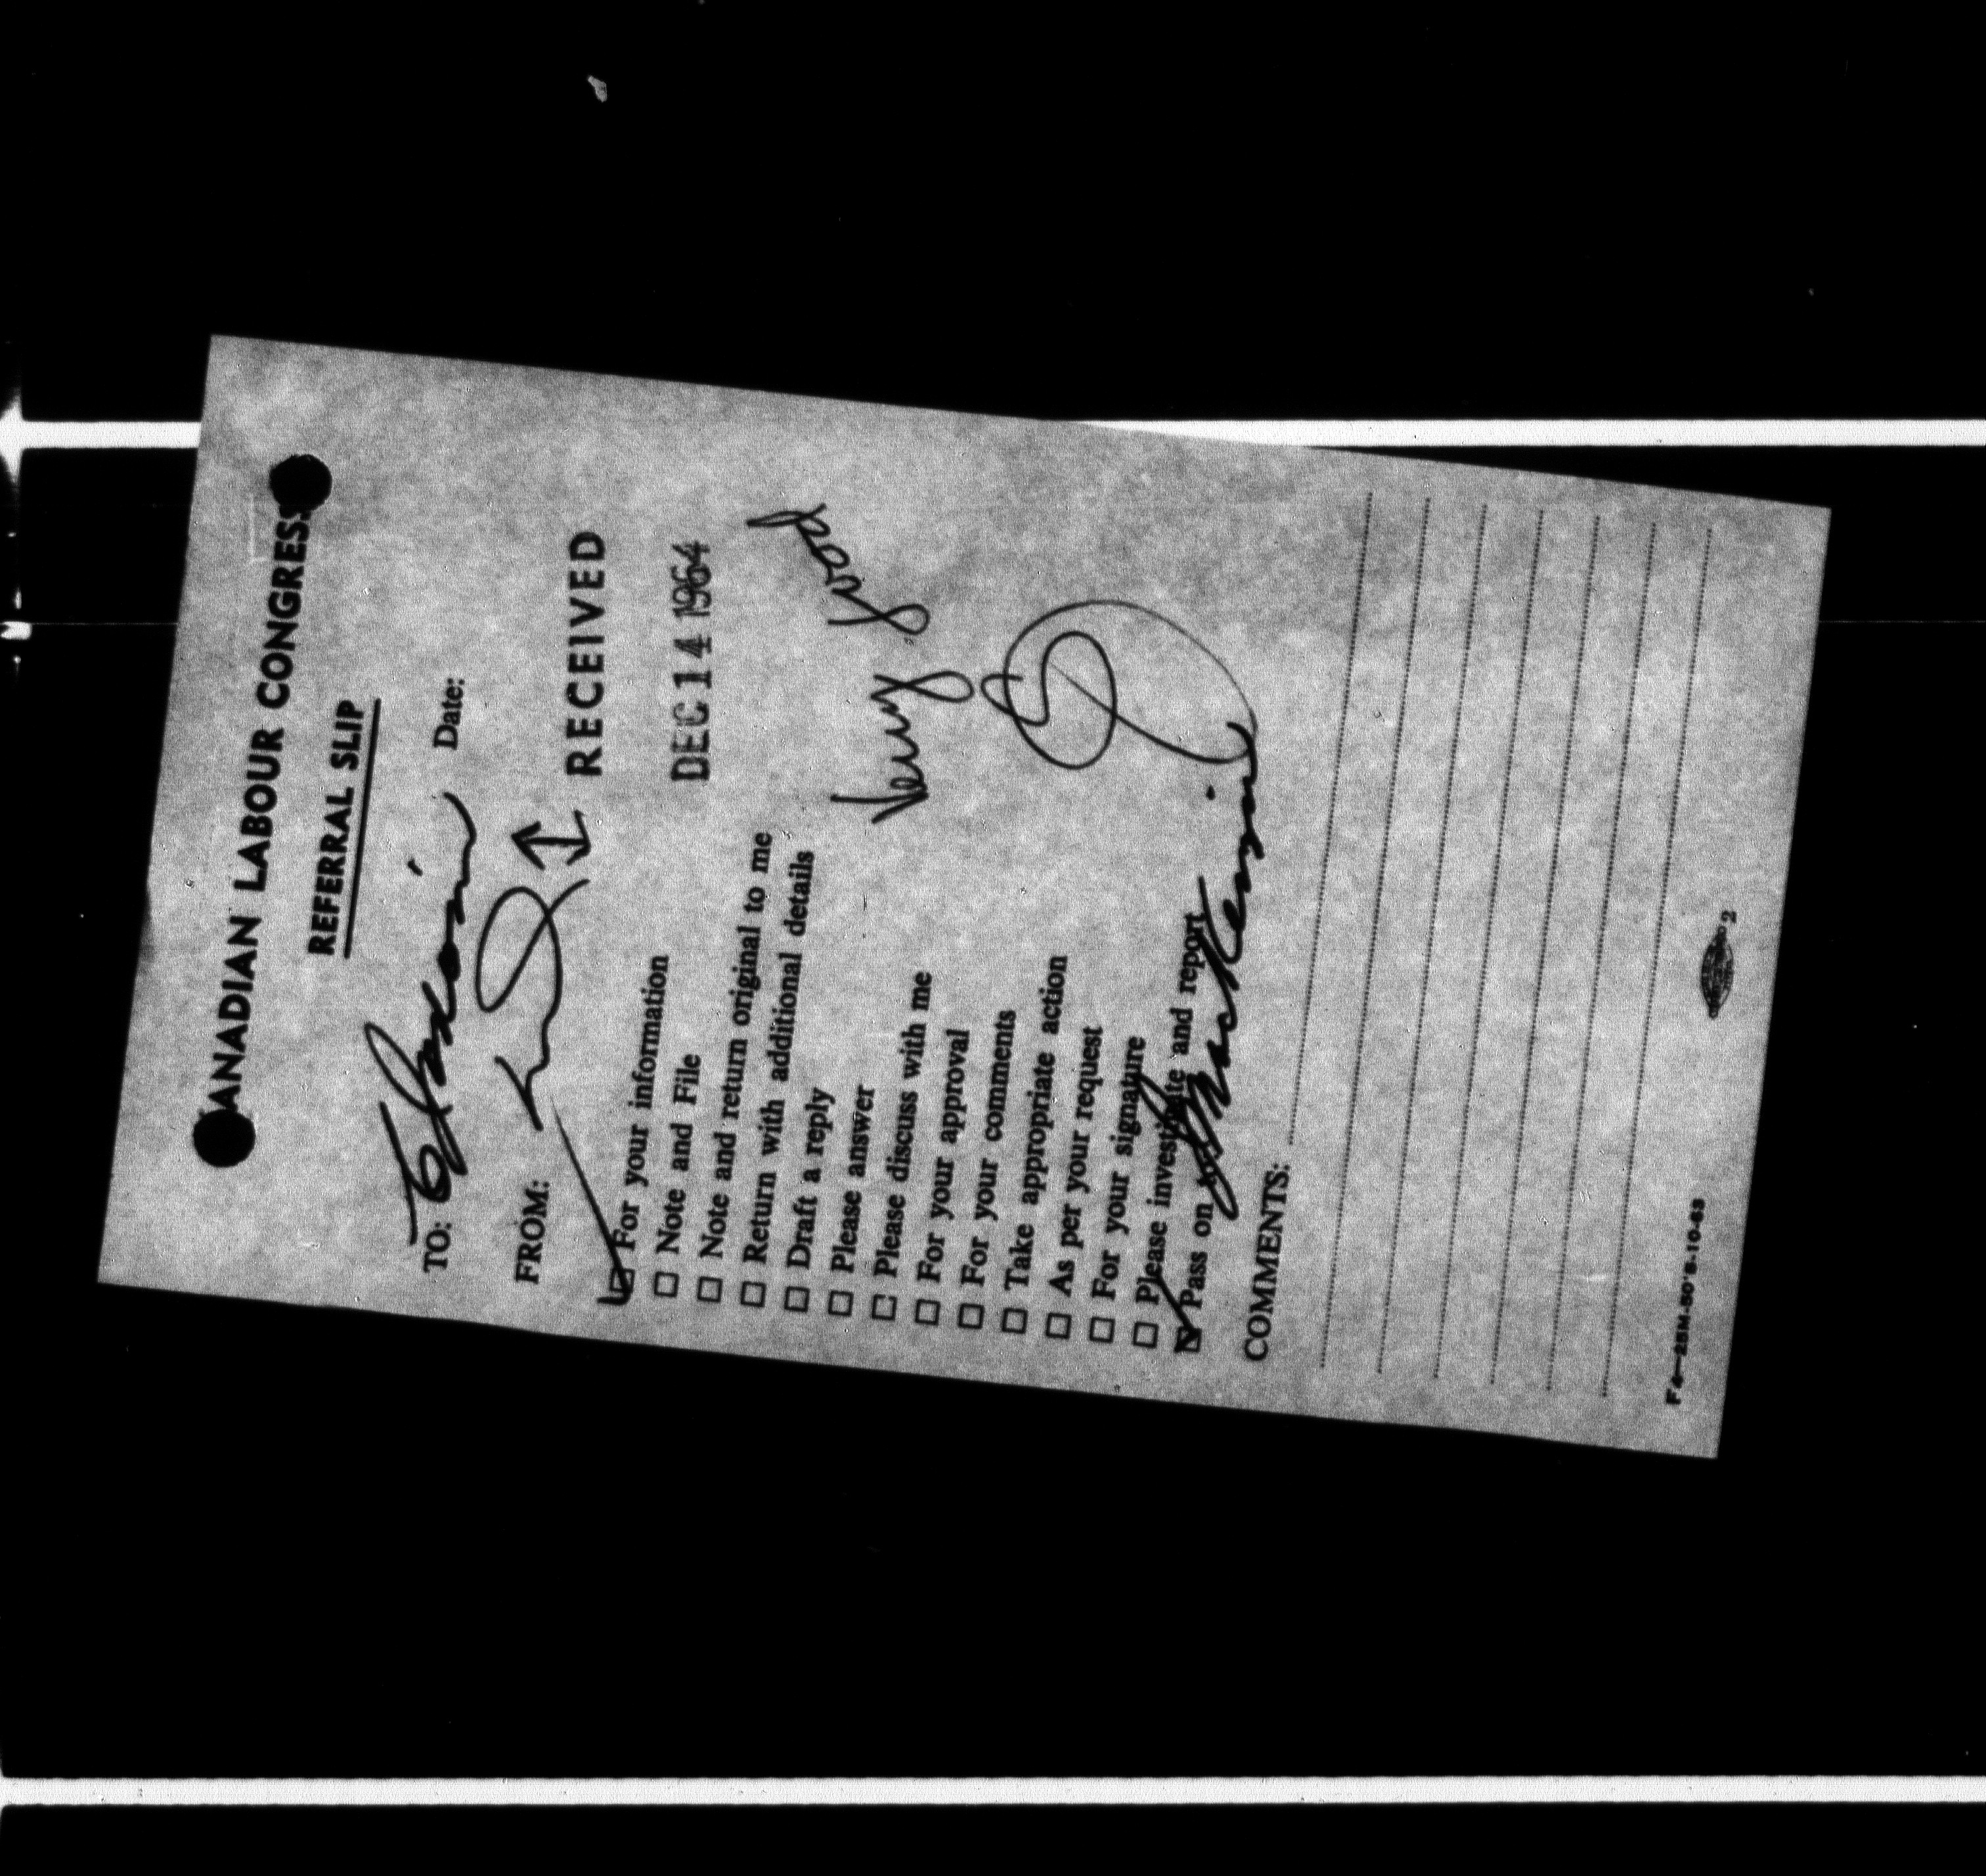 CANADIAN LABOUR CONGRESS
REFERRAL SLIP
TO:
Date:
FROM:
RECEIVED
DEC 14 1964
For your information
Note and File
Note and return original to me
Return with additional details
Draft a reply
Please answer
Please discuss with me
very good
For your approval
For your comments
Take appropriate action
As per your request
For your signature
Please investigate and report
Pass on to
COMMENTS:
F4—25M-50'S-10-63
2